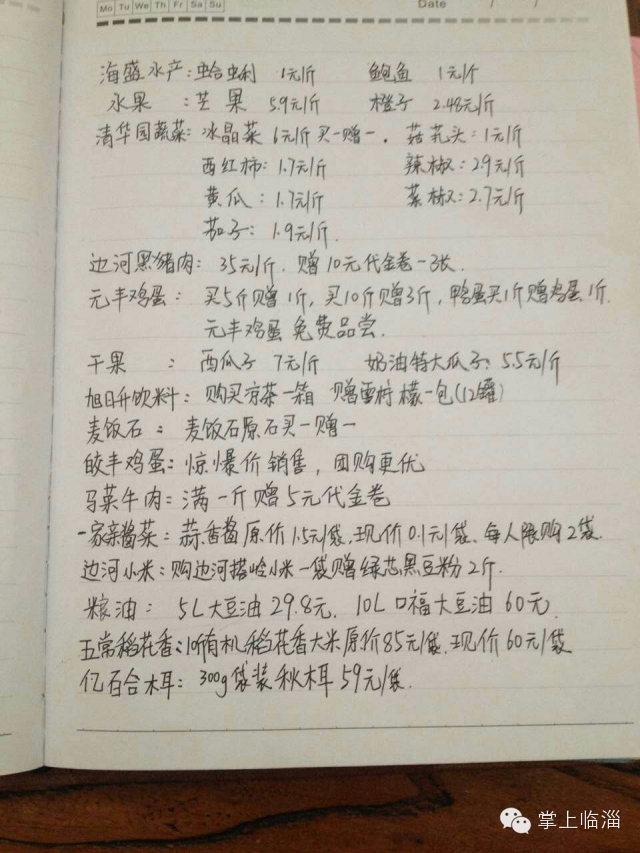 Mo Tu We Th Fr Sa Su
Date / /
海盛水产：蛤蜊 1元/斤 鲍鱼 1元/斤
水果 ：芒果 5.9元/斤 橙子 2.48元/斤
清华园蔬菜：冰晶菜 6元/斤 买一赠一. 菇艽头：1元/斤
西红柿：1.7元/斤 辣椒：2.9元/斤
黄瓜：1.7元/斤 菜椒：2.7元/斤
茄子：1.9元/斤.
边河黑猪肉：35元/斤. 赠10元代金卷一张.
元丰鸡蛋：买5斤赠1斤, 买10斤赠3斤, 鸭蛋买1斤赠鸡蛋1斤.
元丰鸡蛋 免费品尝.
干果 ：西瓜子 7元/斤 奶油特大瓜子：5.5元/斤
旭日升饮料：购买凉茶一箱 赠雪柠檬一包(12罐)
麦饭石：麦饭石原石买一赠一
皎丰鸡蛋：惊爆价销售, 团购更优
马菜牛肉：满一斤赠5元代金卷
一家亲酱菜：蒜香酱原价1.5元/袋. 现价0.1元/袋. 每人限购2袋.
边河小米：购边河搭岭小米一袋赠绿芯黑豆粉2斤.
粮油：5L大豆油29.8元. 10L口福大豆油60元.
五常稻花香：10斤有机稻花香大米原价85元/袋. 现价60元/袋
亿百合木耳：300g袋装秋木耳59元/袋.
掌上临淄